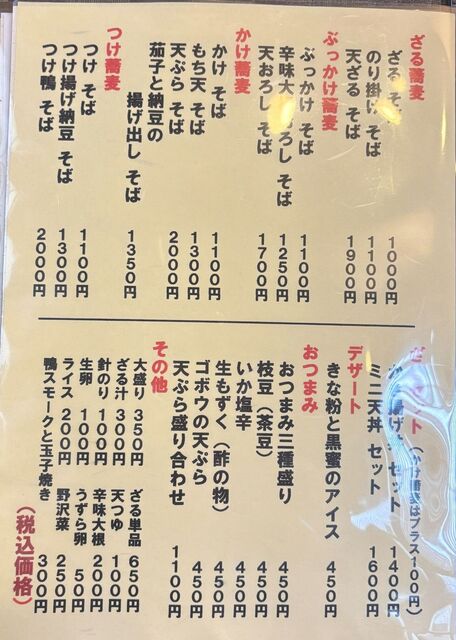 ざる蕎麦
ざる そば 1000円
のり掛け そば 1100円
天ざる そば 1900円
ぶっかけ蕎麦
ぶっかけ そば 1100円
辛味大 ろし そば 1250円
天おろし そば 1700円
かけ蕎麦
かけ そば 1100円
もち天 そば 1300円
天ぷら そば 2000円
茄子と納豆の
揚げ出し そば 1350円
つけ蕎麦
つけ そば 1100円
つけ揚げ納豆 そば 1300円
つけ鴨 そば 2000円
ット (かけ蕎麦はプラス100円)
揚げ セット 1400円
ミニ天丼 セット 1600円
デザート
きな粉と黒蜜のアイス 450円
おつまみ
おつまみ三種盛り 450円
枝豆(茶豆) 450円
いか塩辛 450円
生もずく(酢の物) 450円
ゴボウの天ぷら 450円
天ぷら盛り合わせ 1100円
その他
大盛り 350円 ざる単品 650円
ざる汁 300円 天つゆ 100円
針のり 100円 辛味大根 200円
生卵 100円 うずら卵 50円
ライス 200円 野沢菜 250円
鴨スモークと玉子焼き 300円
(税込価格)